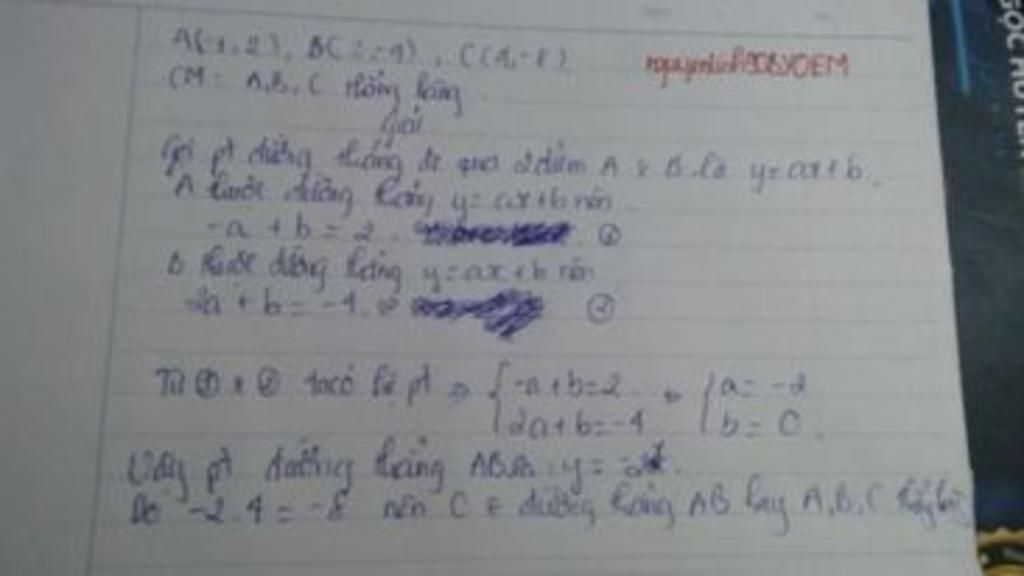 A(-1,2), B(2,-4), C(4,-8)
CM: A,B,C thẳng hàng
Giải
Gọi pt đường thẳng đi qua 2 điểm A & B là y=ax+b.
A thuộc đường thẳng y=ax+b nên
-a + b = 2. ①
B thuộc đường thẳng y=ax+b nên
2a + b = -4 ②
Từ ① & ② ta có hệ pt ⇒ {-a+b=2 ⇒ {a=-2
2a+b=-4 b=0
Vậy pt đường thẳng AB là: y=-2x.
Do -2.4=-8 nên C ∈ đường thẳng AB hay A,B,C thẳng hàng